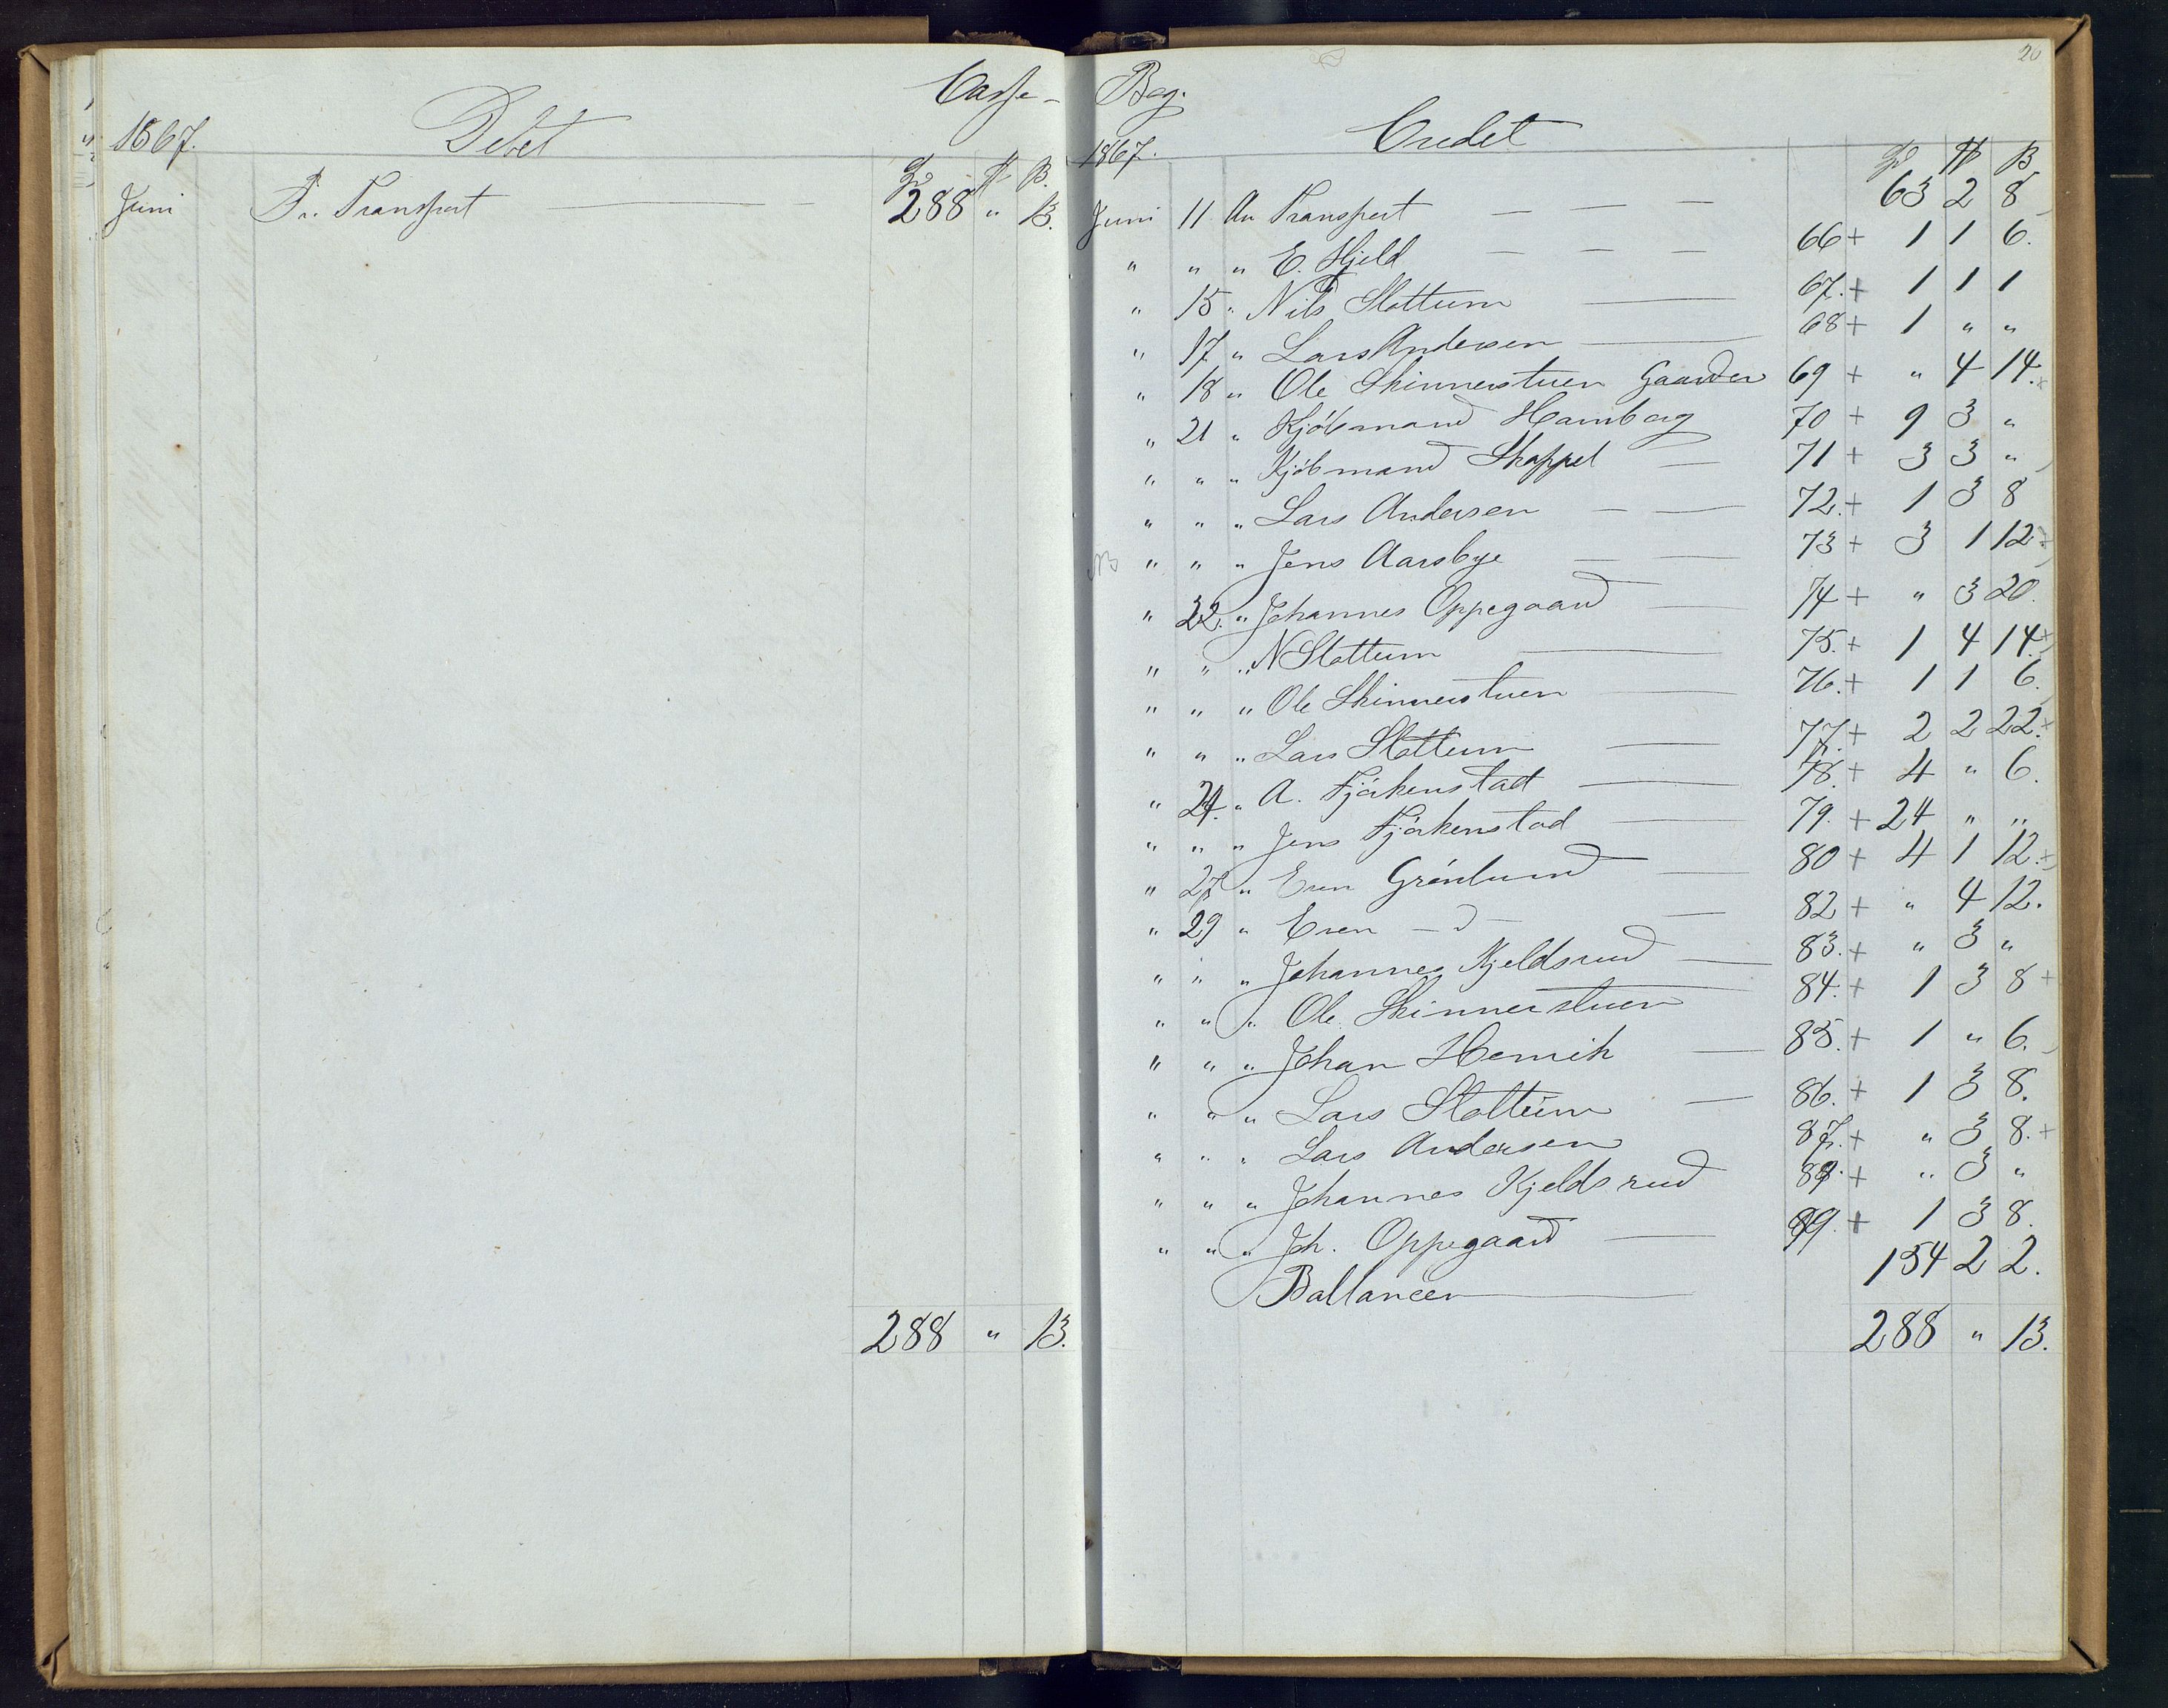 Casse-
1867.
Debet
Spd ₻ β.
Juni Pr. Transport 288 " 13.
288 " 13.
20
Bog.
1867.
Credet
Spd ₻ β
Juni 11 An Transport 63 2 8
" " " E. Hjeld 66 + 1 1 6.
" 15 " Nils Slottum 67. + 1 1 1
" 17 " Lars Andersen 68 + 1 " "
" 18 " Ole Skinnerstuen Gaarder 69 + " 4 14.
" 21 " Kjöbmand Hamborg 70 + 9 3 "
" " " Kjöbmand Skappel 71 + 3 3 "
" " " Lars Andersen 72. + 1 3 8
" " " Jens Aarsbye 73 + 3 1 12
" 22. " Johannes Oppegaard 74 + " 3 20.
" " " N Slottum 75. + 1 4 14.
" " " Ole Skinnerstuen 76. + 1 1 6.
" " " Lars Slottum 77. + 2 2 22.
" 24. " A. Fjörkenstad 78. + 4 " 6.
" " " Jens Fjörkenstad 79. + 24 " "
" 27 " Even Grönlund 80 + 4 1 12.
" 29 " Even - d - 82 + " 4 12.
" " " Johannes Kjeldsrud 83. + " 3 "
" " " Ole Skinnerstuen 84. + 1 3 8
" " " Johan Henrik 85. + 1 " 6.
" " " Lars Slottum 86. + 1 3 8.
" " " Lars Andersen 87. + " 3 8.
" " " Johannes Kjeldsrud 88. + " 3 "
" " " Joh. Oppegaard 89. + 1 3 8.
Ballancen 154 2 2.
288 " 13.